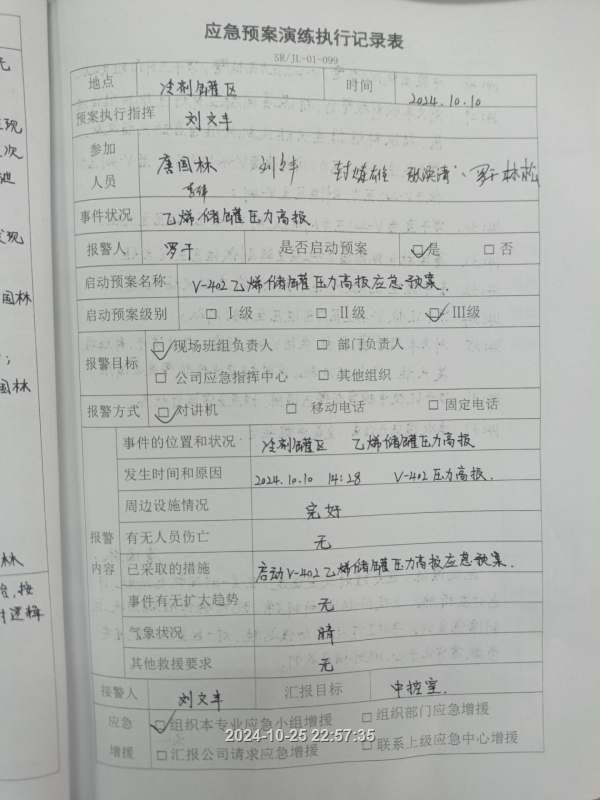 应急预案演练执行记录表
SR/JL-01-099
地点 冷剂罐区 时间 2024.10.10
预案执行指挥 刘文丰
参加人员 唐国林 封娅雄 罗干 林松
事件状况 乙烯储罐压力高报
报警人 罗干 是否启动预案 ☑是 □否
启动预案名称 V-402乙烯储罐压力高报应急预案.
启动预案级别 □I级 □II级 ☑III级
报警目标 ☑现场班组负责人 □部门负责人
□公司应急指挥中心 □其他组织
报警方式 ☑对讲机 □移动电话 □固定电话
报警内容
事件的位置和状况 冷剂罐区 乙烯储罐压力高报
发生时间和原因 2024.10.10 14:28 V-402压力高报.
周边设施情况 完好
有无人员伤亡 无
已采取的措施 启动V-402乙烯储罐压力高报应急预案.
事件有无扩大趋势 无
气象状况 晴
其他救援要求 无
接警人 刘文丰 汇报目标 中控室.
应急增援 ☑组织本专业应急小组增援 □组织部门应急增援
□汇报公司请求应急增援 □联系上级应急中心增援
2024-10-25 22:57:35
现
次
进
发现
国林
;
国林
林
按
择